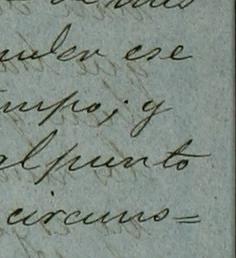 nder ese
empo; y
al punto
circuns=